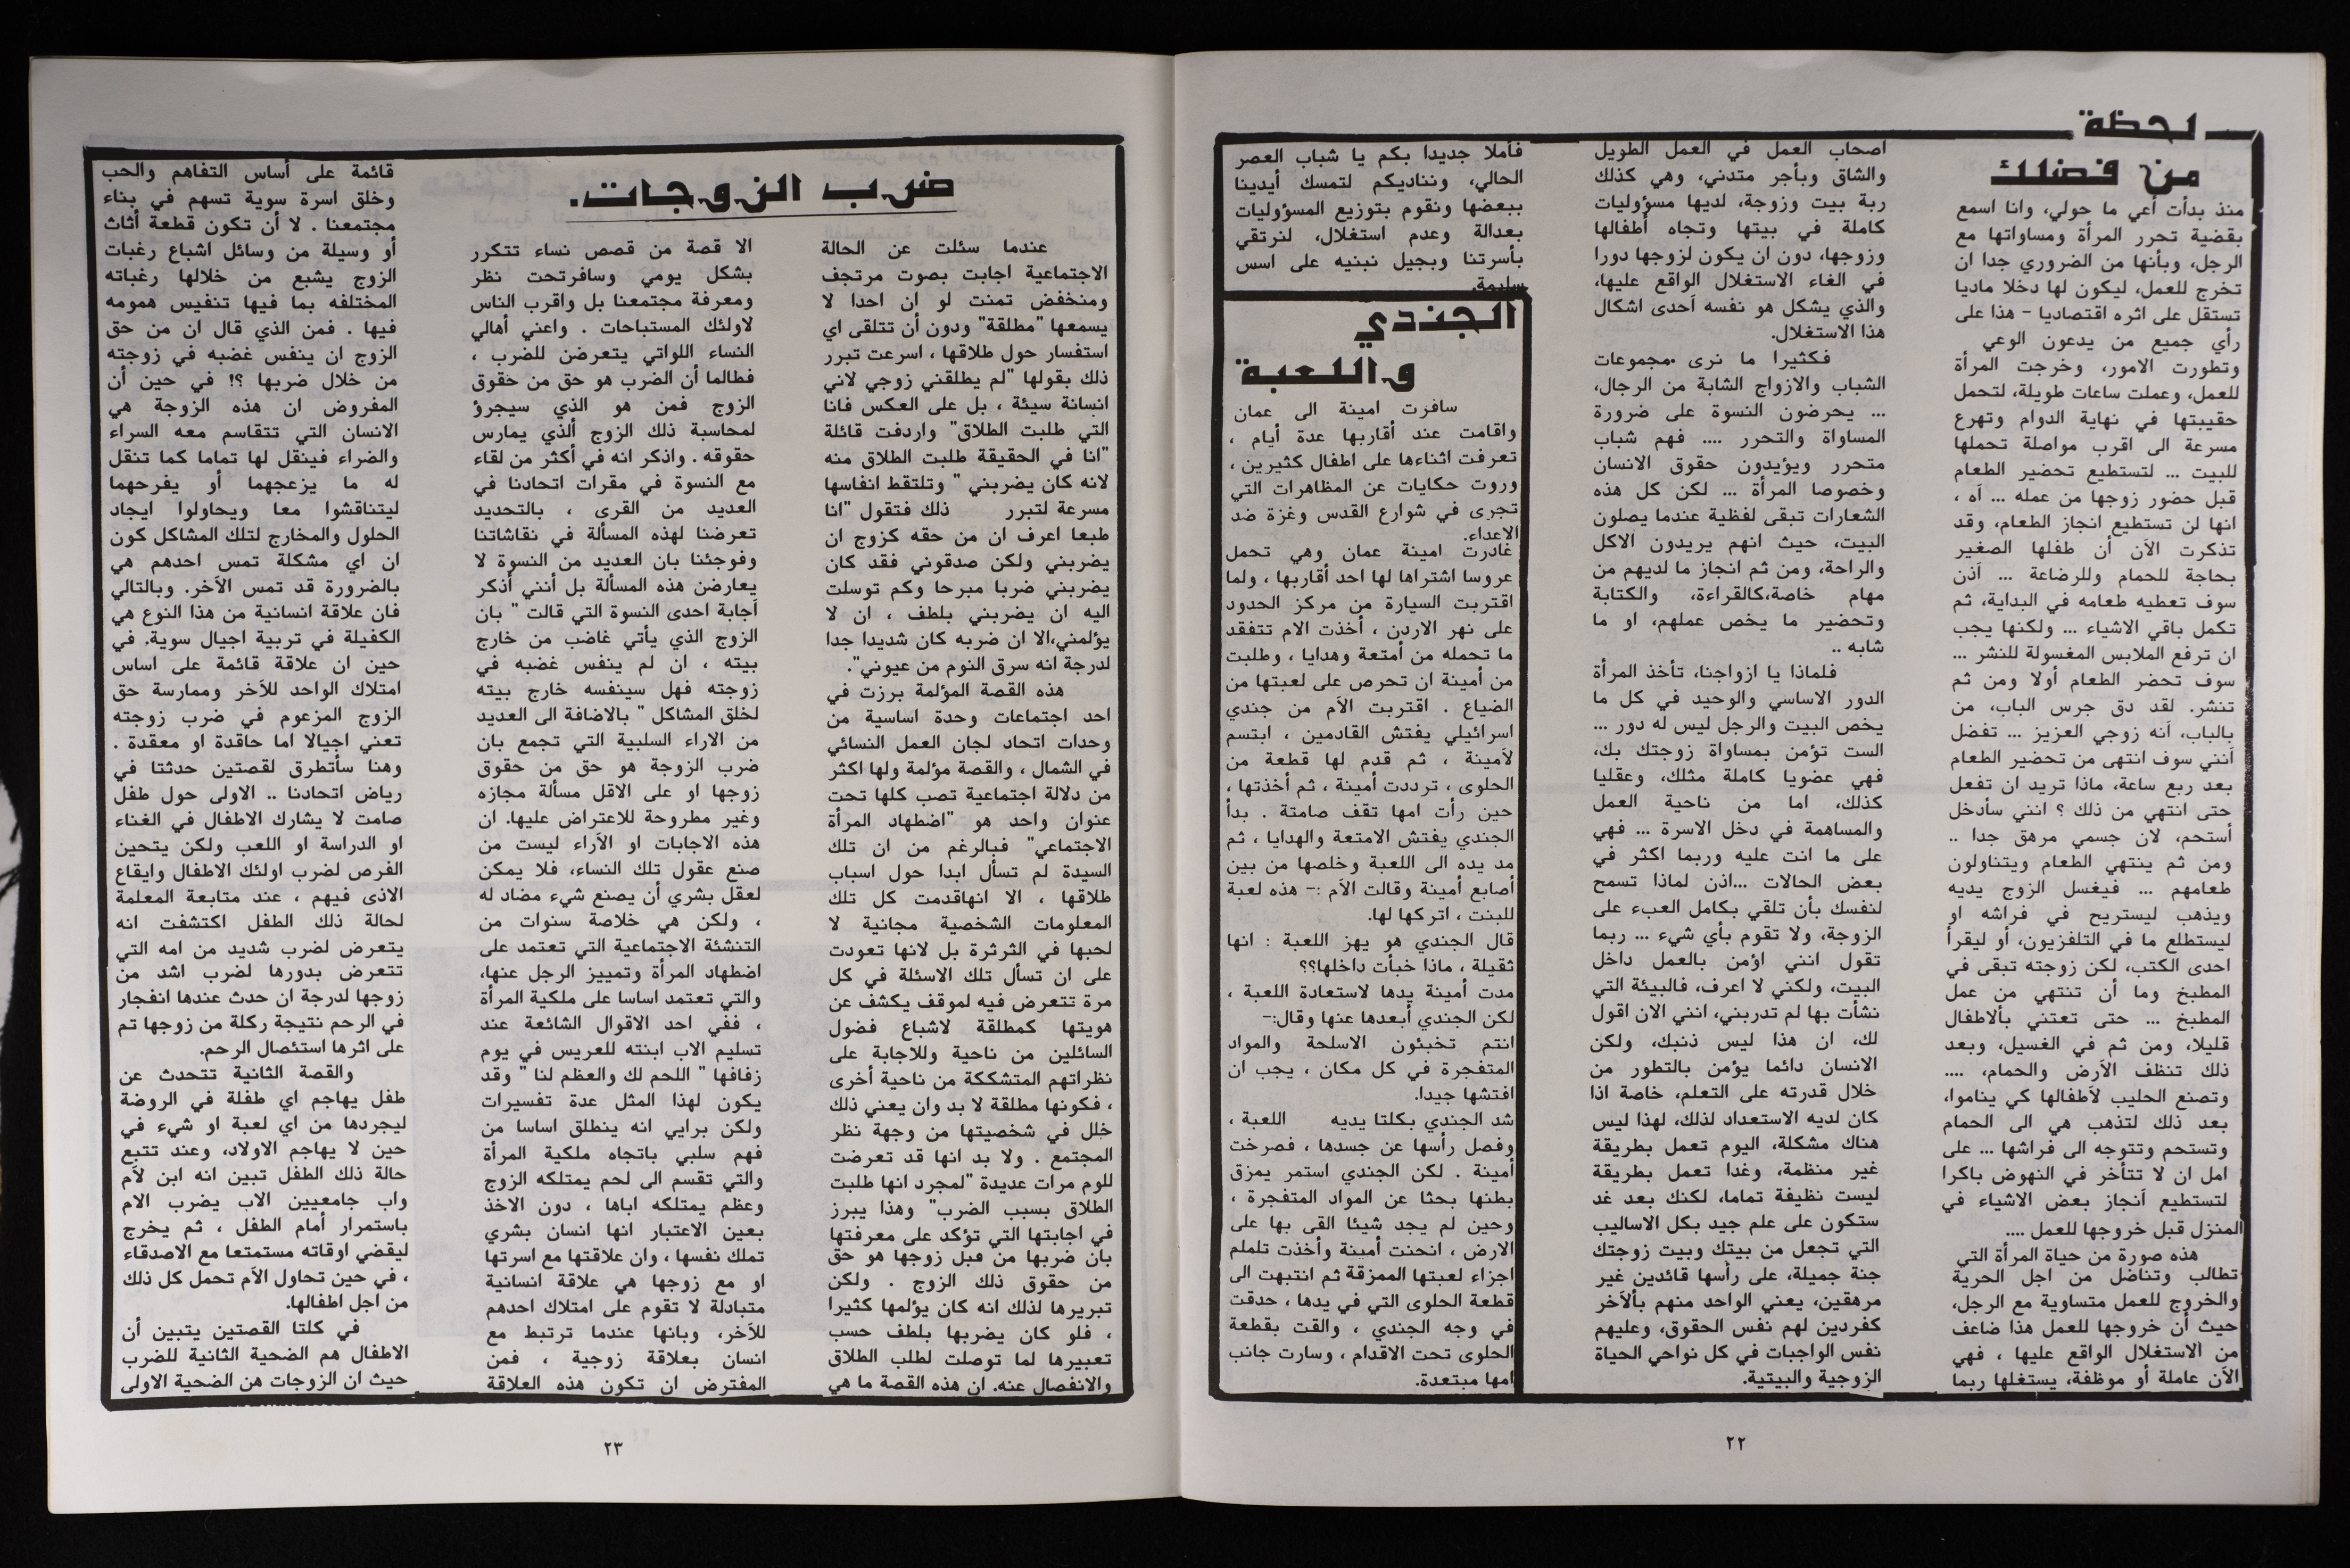 لحظة
من فضلك
منذ بدأت أعي ما حولي، وانا اسمع
بقضية تحرر المرأة ومساواتها مع
الرجل، وبأنها من الضروري جدا ان
تخرج للعمل، ليكون لها دخلا ماديا
تستقل على اثره اقتصاديا - هذا على
رأي جميع من يدعون الوعي
وتطورت الامور، وخرجت المرأة
للعمل، وعملت ساعات طويلة، لتحمل
حقيبتها في نهاية الدوام وتهرع
مسرعة الى اقرب مواصلة تحملها
للبيت ... لتستطيع تحضير الطعام
قبل حضور زوجها من عمله ... آه ،
انها لن تستطيع انجاز الطعام، وقد
تذكرت الآن أن طفلها الصغير
بحاجة للحمام وللرضاعة ... آذن
سوف تعطيه طعامه في البداية، ثم
تكمل باقي الاشياء ... ولكنها يجب
ان ترفع الملابس المغسولة للنشر ...
سوف تحضر الطعام أولا ومن ثم
تنشر. لقد دق جرس الباب، من
بالباب، أنه زوجي العزيز ... تفضل
أنني سوف انتهى من تحضير الطعام
بعد ربع ساعة، ماذا تريد ان تفعل
حتى انتهي من ذلك ؟ انني سأدخل
أستحم، لان جسمي مرهق جدا ..
ومن ثم ينتهي الطعام ويتناولون
طعامهم ... فيغسل الزوج يديه
ويذهب ليستريح في فراشه او
ليستطلع ما في التلفزيون، أو ليقرأ
احدى الكتب، لكن زوجته تبقى في
المطبخ وما أن تنتهي من عمل
المطبخ ... حتى تعتني بألاطفال
قليلا، ومن ثم في الغسيل، وبعد
ذلك تنظف الآرض والحمام، ....
وتصنع الحليب لآطفالها كي يناموا،
بعد ذلك لتذهب هي الى الحمام
وتستحم وتتوجه الى فراشها ... على
امل ان لا تتأخر في النهوض باكرا
لتستطيع آنجاز بعض الاشياء في
المنزل قبل خروجها للعمل ....
هذه صورة من حياة المرأة التي
تطالب وتناضل من اجل الحرية
والخروج للعمل متساوية مع الرجل،
حيث أن خروجها للعمل هذا ضاعف
من الاستغلال الواقع عليها ، فهي
الآن عاملة أو موظفة، يستغلها ربما
اصحاب العمل في العمل الطويل
والشاق وبأجر متدني، وهي كذلك
ربة بيت وزوجة، لديها مسؤوليات
كاملة في بيتها وتجاه أطفالها
وزوجها، دون ان يكون لزوجها دورا
في الغاء الاستغلال الواقع عليها،
والذي يشكل هو نفسه آحدى اشكال
هذا الاستغلال.
فكثيرا ما نرى مجموعات
الشباب والازواج الشابة من الرجال،
... يحرضون النسوة على ضرورة
المساواة والتحرر .... فهم شباب
متحرر ويؤيدون حقوق الانسان
وخصوصا المرأة ... لكن كل هذه
الشعارات تبقى لفظية عندما يصلون
البيت، حيث انهم يريدون الاكل
والراحة، ومن ثم انجاز ما لديهم من
مهام خاصة،كالقراءة، والكتابة
وتحضير ما يخص عملهم، او ما
شابه ..
فلماذا يا ازواجنا، تأخذ المرأة
الدور الاساسي والوحيد في كل ما
يخص البيت والرجل ليس له دور ...
الست تؤمن بمساواة زوجتك بك،
فهي عضويا كاملة مثلك، وعقليا
كذلك، اما من ناحية العمل
والمساهمة في دخل الاسرة ... فهي
على ما انت عليه وربما اكثر في
بعض الحالات ...اذن لماذا تسمح
لنفسك بأن تلقي بكامل العبء على
الزوجة، ولا تقوم بأي شيء ... ربما
تقول انني اؤمن بالعمل داخل
البيت، ولكني لا اعرف، فالبيئة التي
نشأت بها لم تدربني، انني الان اقول
لك، ان هذا ليس ذنبك، ولكن
الانسان دائما يؤمن بالتطور من
خلال قدرته على التعلم، خاصة اذا
كان لديه الاستعداد لذلك، لهذا ليس
هناك مشكلة، اليوم تعمل بطريقة
غير منظمة، وغدا تعمل بطريقة
ليست نظيفة تماما، لكنك بعد غد
ستكون على علم جيد بكل الاساليب
التي تجعل من بيتك وبيت زوجتك
جنة جميلة، على رأسها قائدين غير
مرهقين، يعني الواحد منهم بألآخر
كفردين لهم نفس الحقوق، وعليهم
نفس الواجبات في كل نواحي الحياة
الزوجية والبيتية.
فآملا جديدا بكم يا شباب العصر
الحالي، ونناديكم لتمسك أيدينا
ببعضها ونقوم بتوزيع المسؤوليات
بعدالة وعدم استغلال، لنرتقي
بأسرتنا وبجيل نبنيه على اسس
سليمة.
الجندي
واللعبة
سافرت امينة الى عمان
واقامت عند أقاربها عدة أيام ،
تعرفت اثناءها على اطفال كثيرين ،
وروت حكايات عن المظاهرات التي
تجرى في شوارع القدس وغزة ضد
الاعداء.
غادرت امينة عمان وهي تحمل
عروسا اشتراها لها احد أقاربها ، ولما
اقتربت السيارة من مركز الحدود
على نهر الاردن ، أخذت الام تتفقد
ما تحمله من أمتعة وهدايا ، وطلبت
من أمينة ان تحرص على لعبتها من
الضياع . اقتربت الآم من جندي
اسرائيلي يفتش القادمين ، ابتسم
لآمينة ، ثم قدم لها قطعة من
الحلوى ، ترددت أمينة ، ثم أخذتها ،
حين رأت امها تقف صامتة . بدأ
الجندي يفتش الامتعة والهدايا ، ثم
مد يده الى اللعبة وخلصها من بين
أصابع أمينة وقالت الآم :- هذه لعبة
للبنت ، اتركها لها.
قال الجندي هو يهز اللعبة : انها
ثقيلة ، ماذا خبأت داخلها؟؟
مدت أمينة يدها لاستعادة اللعبة ،
لكن الجندي أبعدها عنها وقال:-
انتم تخبئون الاسلحة والمواد
المتفجرة في كل مكان ، يجب ان
افتشها جيدا.
شد الجندي بكلتا يديه اللعبة ،
وفصل رأسها عن جسدها ، فصرخت
أمينة . لكن الجندي استمر يمزق
بطنها بحثا عن المواد المتفجرة ،
وحين لم يجد شيئا القى بها على
الارض ، انحنت أمينة وأخذت تلملم
اجزاء لعبتها الممزقة ثم انتبهت الى
قطعة الحلوى التي في يدها ، حدقت
في وجه الجندي ، والقت بقطعة
الحلوى تحت الاقدام ، وسارت جانب
امها مبتعدة.
٢٢
ضرب الزوجات.
عندما سئلت عن الحالة
الاجتماعية اجابت بصوت مرتجف
ومنخفض تمنت لو ان احدا لا
يسمعها "مطلقة" ودون أن تتلقى اي
استفسار حول طلاقها ، اسرعت تبرر
ذلك بقولها "لم يطلقني زوجي لاني
انسانة سيئة ، بل على العكس فانا
التي طلبت الطلاق" واردفت قائلة
"انا في الحقيقة طلبت الطلاق منه
لانه كان يضربني " وتلتقط انفاسها
مسرعة لتبرر ذلك فتقول "انا
طبعا اعرف ان من حقه كزوج ان
يضربني ولكن صدقوني فقد كان
يضربني ضربا مبرحا وكم توسلت
اليه ان يضربني بلطف ، ان لا
يؤلمني،الا ان ضربه كان شديدا جدا
لدرجة انه سرق النوم من عيوني".
هذه القصة المؤلمة برزت في
احد اجتماعات وحدة اساسية من
وحدات اتحاد لجان العمل النسائي
في الشمال ، والقصة مؤلمة ولها اكثر
من دلالة اجتماعية تصب كلها تحت
عنوان واحد هو "اضطهاد المرأة
الاجتماعي" فبالرغم من ان تلك
السيدة لم تسأل ابدا حول اسباب
طلاقها ، الا انهاقدمت كل تلك
المعلومات الشخصية مجانية لا
لحبها في الثرثرة بل لانها تعودت
على ان تسأل تلك الاسئلة في كل
مرة تتعرض فيه لموقف يكشف عن
هويتها كمطلقة لاشباع فضول
السائلين من ناحية وللاجابة على
نظراتهم المتشككة من ناحية أخرى
، فكونها مطلقة لا بد وان يعني ذلك
خلل في شخصيتها من وجهة نظر
المجتمع . ولا بد انها قد تعرضت
للوم مرات عديدة "لمجرد انها طلبت
الطلاق بسبب الضرب" وهذا يبرز
في اجابتها التي تؤكد على معرفتها
بان ضربها من قبل زوجها هو حق
من حقوق ذلك الزوج . ولكن
تبريرها لذلك انه كان يؤلمها كثيرا
، فلو كان يضربها بلطف حسب
تعبيرها لما توصلت لطلب الطلاق
والانفصال عنه. ان هذه القصة ما هي
الا قصة من قصص نساء تتكرر
بشكل يومي وسافرتحت نظر
ومعرفة مجتمعنا بل واقرب الناس
لاولئك المستباحات . واعني أهالي
النساء اللواتي يتعرضن للضرب ،
فطالما أن الضرب هو حق من حقوق
الزوج فمن هو الذي سيجرؤ
لمحاسبة ذلك الزوج ألذي يمارس
حقوقه . واذكر انه في أكثر من لقاء
مع النسوة في مقرات اتحادنا في
العديد من القرى ، بالتحديد
تعرضنا لهذه المسألة في نقاشاتنا
وفوجئنا بان العديد من النسوة لا
يعارضن هذه المسألة بل أنني أذكر
آجابة احدى النسوة التي قالت " بان
الزوج الذي يأتي غاضب من خارج
بيته ، ان لم ينفس غضبه في
زوجته فهل سينفسه خارج بيته
لخلق المشاكل " بالاضافة الى العديد
من الاراء السلبية التي تجمع بان
ضرب الزوجة هو حق من حقوق
زوجها او على الاقل مسألة مجازه
وغير مطروحة للاعتراض عليها. ان
هذه الاجابات او الآراء ليست من
صنع عقول تلك النساء، فلا يمكن
لعقل بشري أن يصنع شيء مضاد له
، ولكن هي خلاصة سنوات من
التنشئة الاجتماعية التي تعتمد على
اضطهاد المرأة وتمييز الرجل عنها،
والتي تعتمد اساسا على ملكية المرأة
، ففي احد الاقوال الشائعة عند
تسليم الاب ابنته للعريس في يوم
زفافها " اللحم لك والعظم لنا " وقد
يكون لهذا المثل عدة تفسيرات
ولكن برايي انه ينطلق اساسا من
فهم سلبي باتجاه ملكية المرأة
والتي تقسم الى لحم يمتلكه الزوج
وعظم يمتلكه اباها ، دون الاخذ
بعين الاعتبار انها انسان بشري
تملك نفسها ، وان علاقتها مع اسرتها
او مع زوجها هي علاقة انسانية
متبادلة لا تقوم على امتلاك احدهم
للآخر، وبانها عندما ترتبط مع
انسان بعلاقة زوجية ، فمن
المفترض ان تكون هذه العلاقة
قائمة على أساس التفاهم والحب
وخلق اسرة سوية تسهم في بناء
مجتمعنا . لا أن تكون قطعة أثاث
أو وسيلة من وسائل اشباع رغبات
الزوج يشبع من خلالها رغباته
المختلفه بما فيها تنفيس همومه
فيها . فمن الذي قال ان من حق
الزوج ان ينفس غضبه في زوجته
من خلال ضربها ؟! في حين أن
المفروض ان هذه الزوجة هي
الانسان التي تتقاسم معه السراء
والضراء فينقل لها تماما كما تنقل
له ما يزعجهما أو يفرحهما
ليتناقشوا معا ويحاولوا ايجاد
الحلول والمخارج لتلك المشاكل كون
ان اي مشكلة تمس احدهم هي
بالضرورة قد تمس الآخر. وبالتالي
فان علاقة انسانية من هذا النوع هي
الكفيلة في تربية اجيال سوية. في
حين ان علاقة قائمة على اساس
امتلاك الواحد للآخر وممارسة حق
الزوج المزعوم في ضرب زوجته
تعني اجيالا اما حاقدة او معقدة .
وهنا سأتطرق لقصتين حدثتا في
رياض اتحادنا .. الاولى حول طفل
صامت لا يشارك الاطفال في الغناء
او الدراسة او اللعب ولكن يتحين
الفرص لضرب اولئك الاطفال وايقاع
الاذى فيهم ، عند متابعة المعلمة
لحالة ذلك الطفل اكتشفت انه
يتعرض لضرب شديد من امه التي
تتعرض بدورها لضرب اشد من
زوجها لدرجة ان حدث عندها انفجار
في الرحم نتيجة ركلة من زوجها تم
على اثرها استئصال الرحم.
والقصة الثانية تتحدث عن
طفل يهاجم اي طفلة في الروضة
ليجردها من اي لعبة او شيء في
حين لا يهاجم الاولاد، وعند تتبع
حالة ذلك الطفل تبين انه ابن لآم
واب جامعيين الاب يضرب الام
باستمرار أمام الطفل ، ثم يخرج
ليقضي اوقاته مستمتعا مع الاصدقاء
، في حين تحاول الآم تحمل كل ذلك
من اجل اطفالها.
في كلتا القصتين يتبين أن
الاطفال هم الضحية الثانية للضرب
حيث ان الزوجات هن الضحية الاولى
٢٣